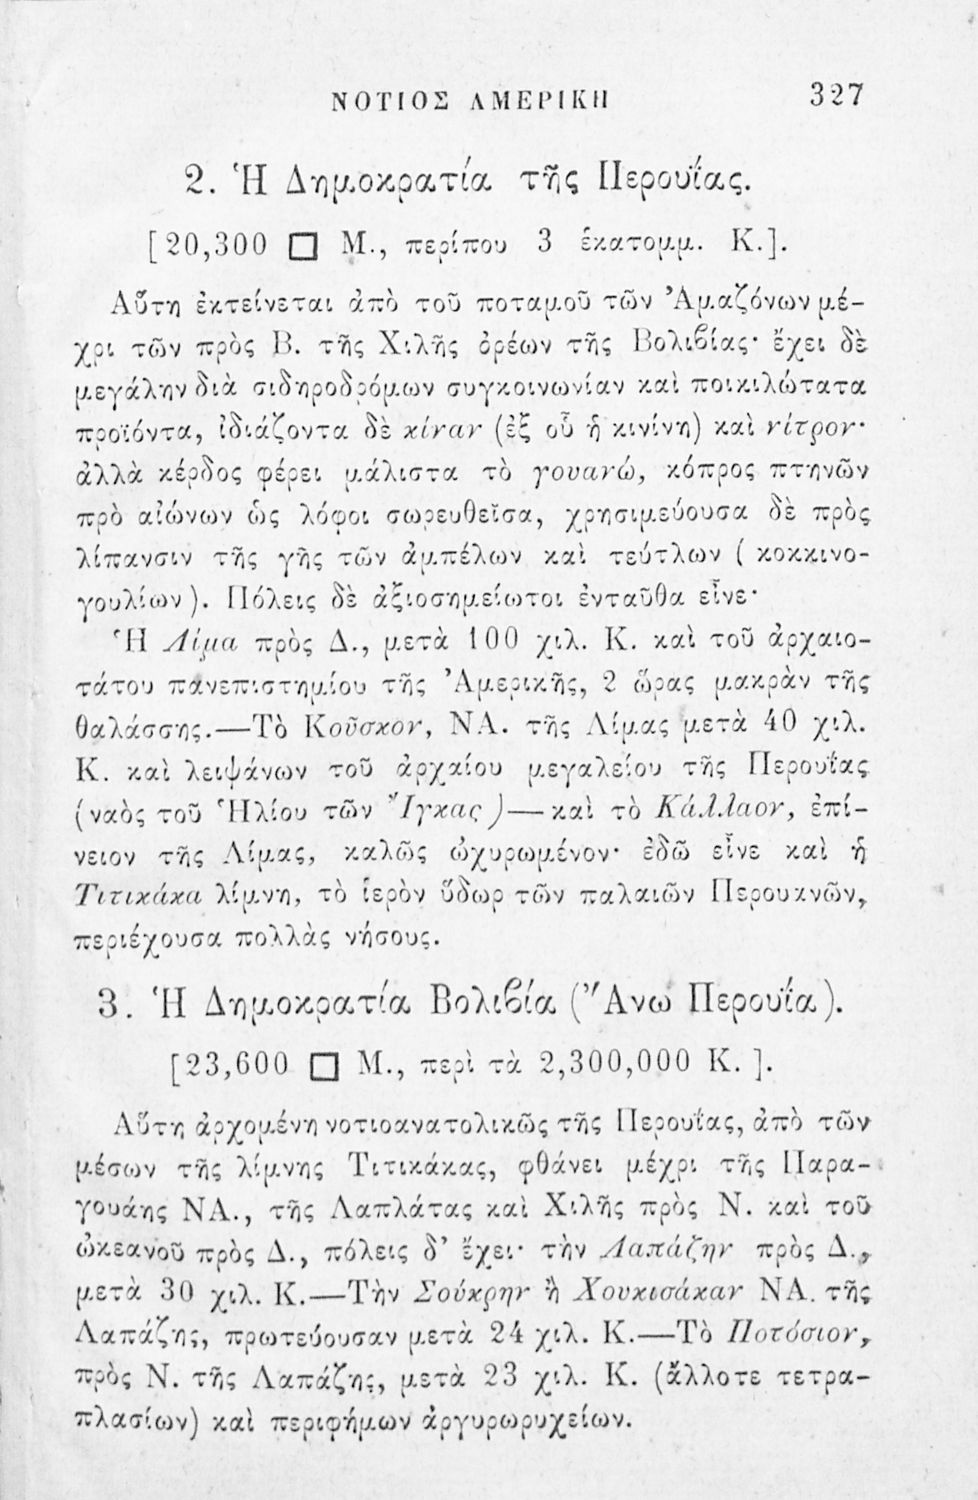 ΝΟΤΙΟΣ ΑΜΕΡΙΚΗ 327
2. Ἡ Δημοκρατία τῆς Περουΐας.
[20,300 □ Μ., περίπου 3 ἑκατομμ. Κ.].
Αὕτη ἐκτείνεται ἀπὸ τοῦ ποταμοῦ τῶν Ἀμαζόνων μέ-
χρι τῶν πρὸς Β. τῆς Χιλῆς ὀρέων τῆς Βολιβίας· ἔχει δὲ
μεγάλην διὰ σιδηροδρόμων συγκοινωνίαν καὶ ποικιλώτατα
προϊόντα, ἰδιάζοντα δὲ κίναν (ἐξ οὗ ἡ κινίνη) καὶ νίτρον·
ἀλλὰ κέρδος φέρει μάλιστα τὸ γουανώ, κόπρος πτηνῶν
πρὸ αἰώνων ὡς λόφοι σωρευθεῖσα, χρησιμεύουσα δὲ πρὸς
λίπανσιν τῆς γῆς τῶν ἀμπέλων καὶ τεύτλων ( κοκκινο-
γουλίων ). Πόλεις δὲ ἀξιοσημείωτοι ἐνταῦθα εἶνε·
Ἡ Λίμα πρὸς Δ., μετὰ 100 χιλ. Κ. καὶ τοῦ ἀρχαιο-
τάτου πανεπιστημίου τῆς Ἀμερικῆς, 2 ὥρας μακρὰν τῆς
θαλάσσης.—Τὸ Κοῦσκον, ΝΑ. τῆς Λίμας μετὰ 40 χιλ.
Κ. καὶ λειψάνων τοῦ ἀρχαίου μεγαλείου τῆς Περουΐας
(ναὸς τοῦ Ἡλίου τῶν Ἴγκας )—καὶ τὸ Κάλλαον, ἐπί-
νειον τῆς Λίμας, καλῶς ὠχυρωμένον· ἐδῶ εἶνε καὶ ἡ
Τιτικάκα λίμνη, τὸ ἱερὸν ὕδωρ τῶν παλαιῶν Περουανῶν,
περιέχουσα πολλὰς νήσους.
3. Ἡ Δημοκρατία Βολιβία (Ἄνω Περουΐα).
[23,600 □ Μ., περὶ τὰ 2,300,000 Κ. ].
Αὕτη ἀρχομένη νοτιοανατολικῶς τῆς Περουΐας, ἀπὸ τῶν
μέσων τῆς λίμνης Τιτικάκας, φθάνει μέχρι τῆς Παρα-
γουάης ΝΑ., τῆς Λαπλάτας καὶ Χιλῆς πρὸς Ν. καὶ τοῦ
ὠκεανοῦ πρὸς Δ., πόλεις δ’ ἔχει· τὴν Λαπάζην πρὸς Δ.,
μετὰ 30 χιλ. Κ.—Τὴν Σούκρην ἢ Χουκισάκαν ΝΑ. τῆς
Λαπάζης, πρωτεύουσαν μετὰ 24 χιλ. Κ.—Τὸ Ποτόσιον,
πρὸς Ν. τῆς Λαπάζης, μετὰ 23 χιλ. Κ. (ἄλλοτε τετρα-
πλασίων) καὶ περιφήμων ἀργυρωρυχείων.